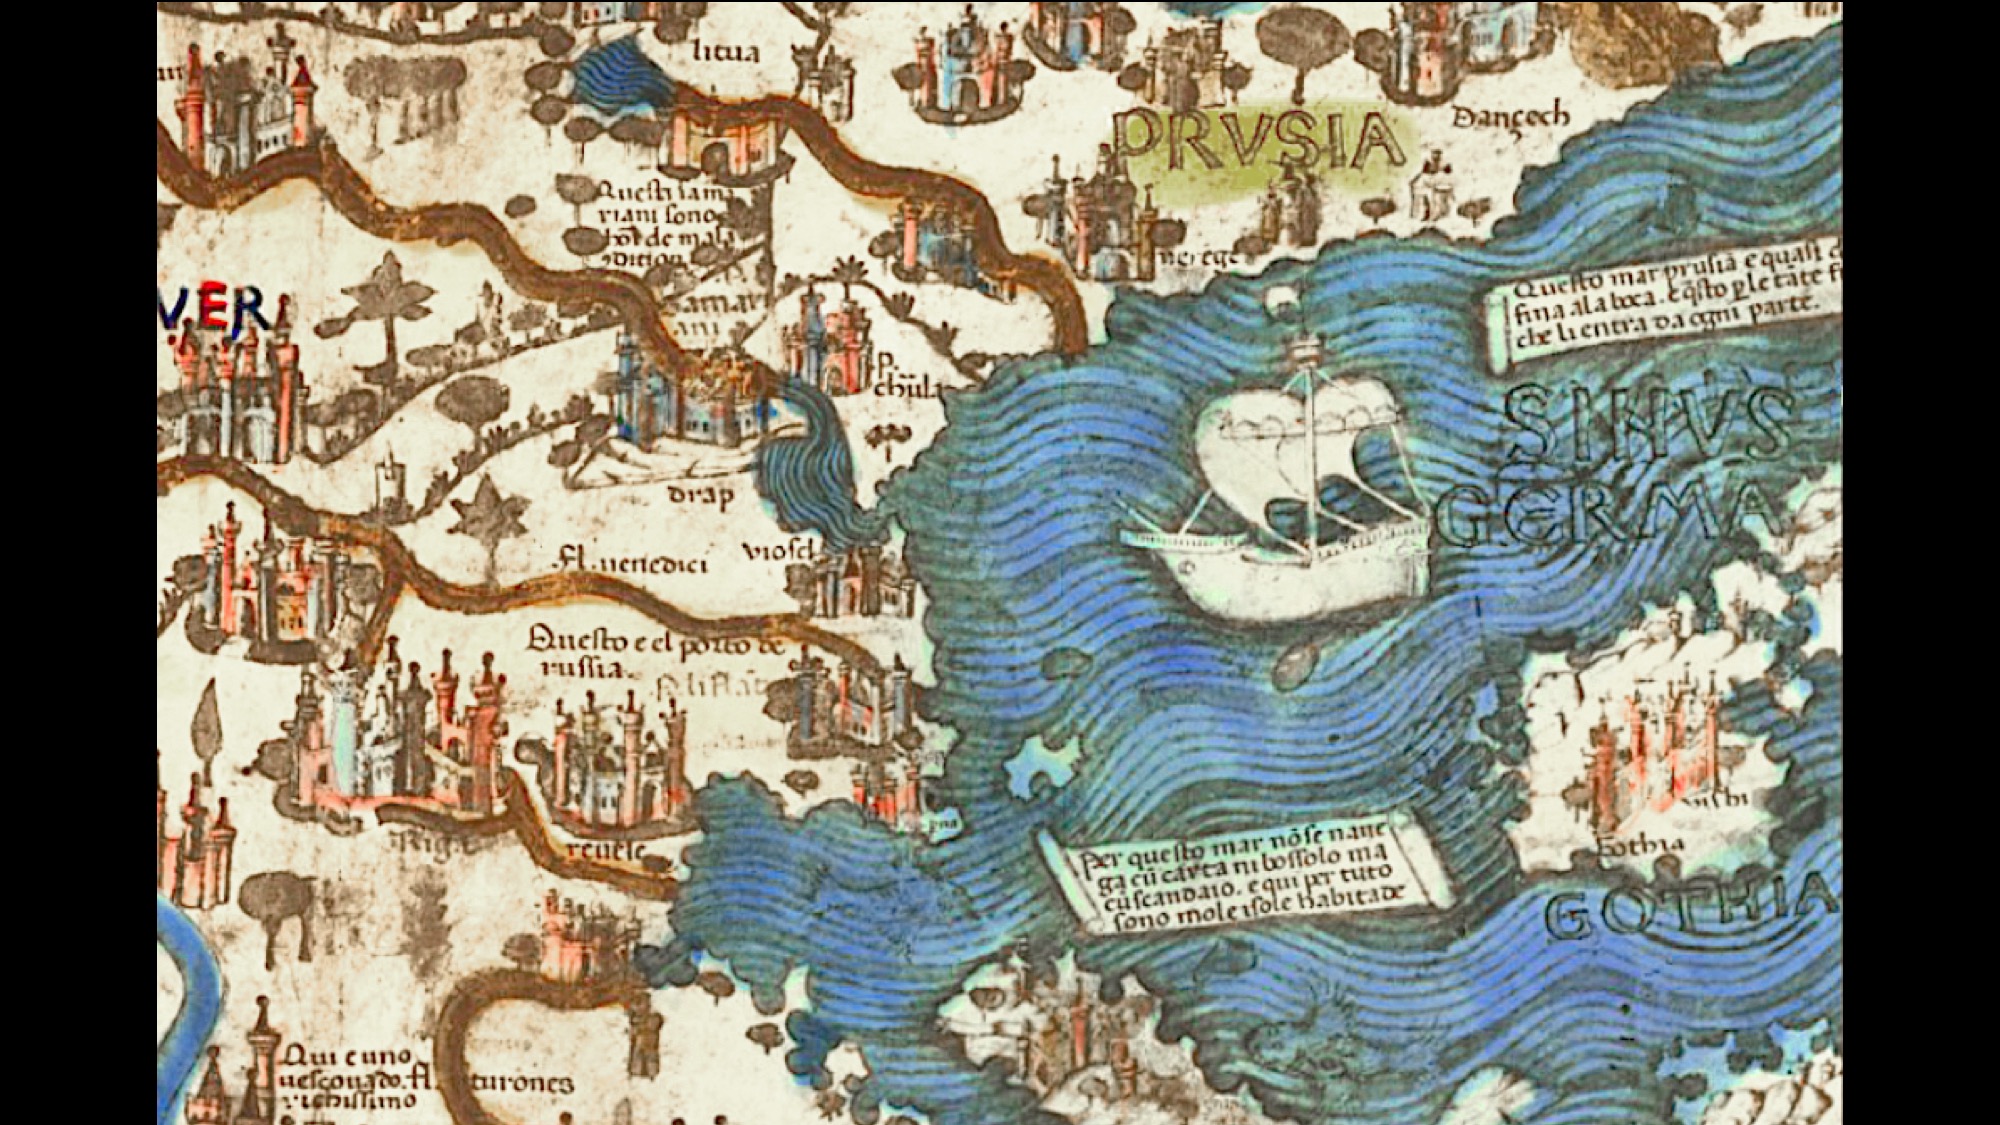 litua
PRVSIA
Dançech
Questi sama
riani sono
hōī de mala
9dition
neregε
VER
Samari
ani
p.
chūla
Questo mar prusiā e quasi
fina ala boca. e q̄sto p̱ le tāte
che li entra da ogni parte.
SINVS
GERMA
drap
fl. uenedici
viosel
Questo e el porto de
russia.
riga
reuele
Per questo mar nō se naue
ga cū carta ni bossolo ma
cū scandaio. e qui per tuto
sono mole isole habitade
visbi
Gothia
GOTHIA
Qui e uno
uescouado.
richissimo
fl. turones